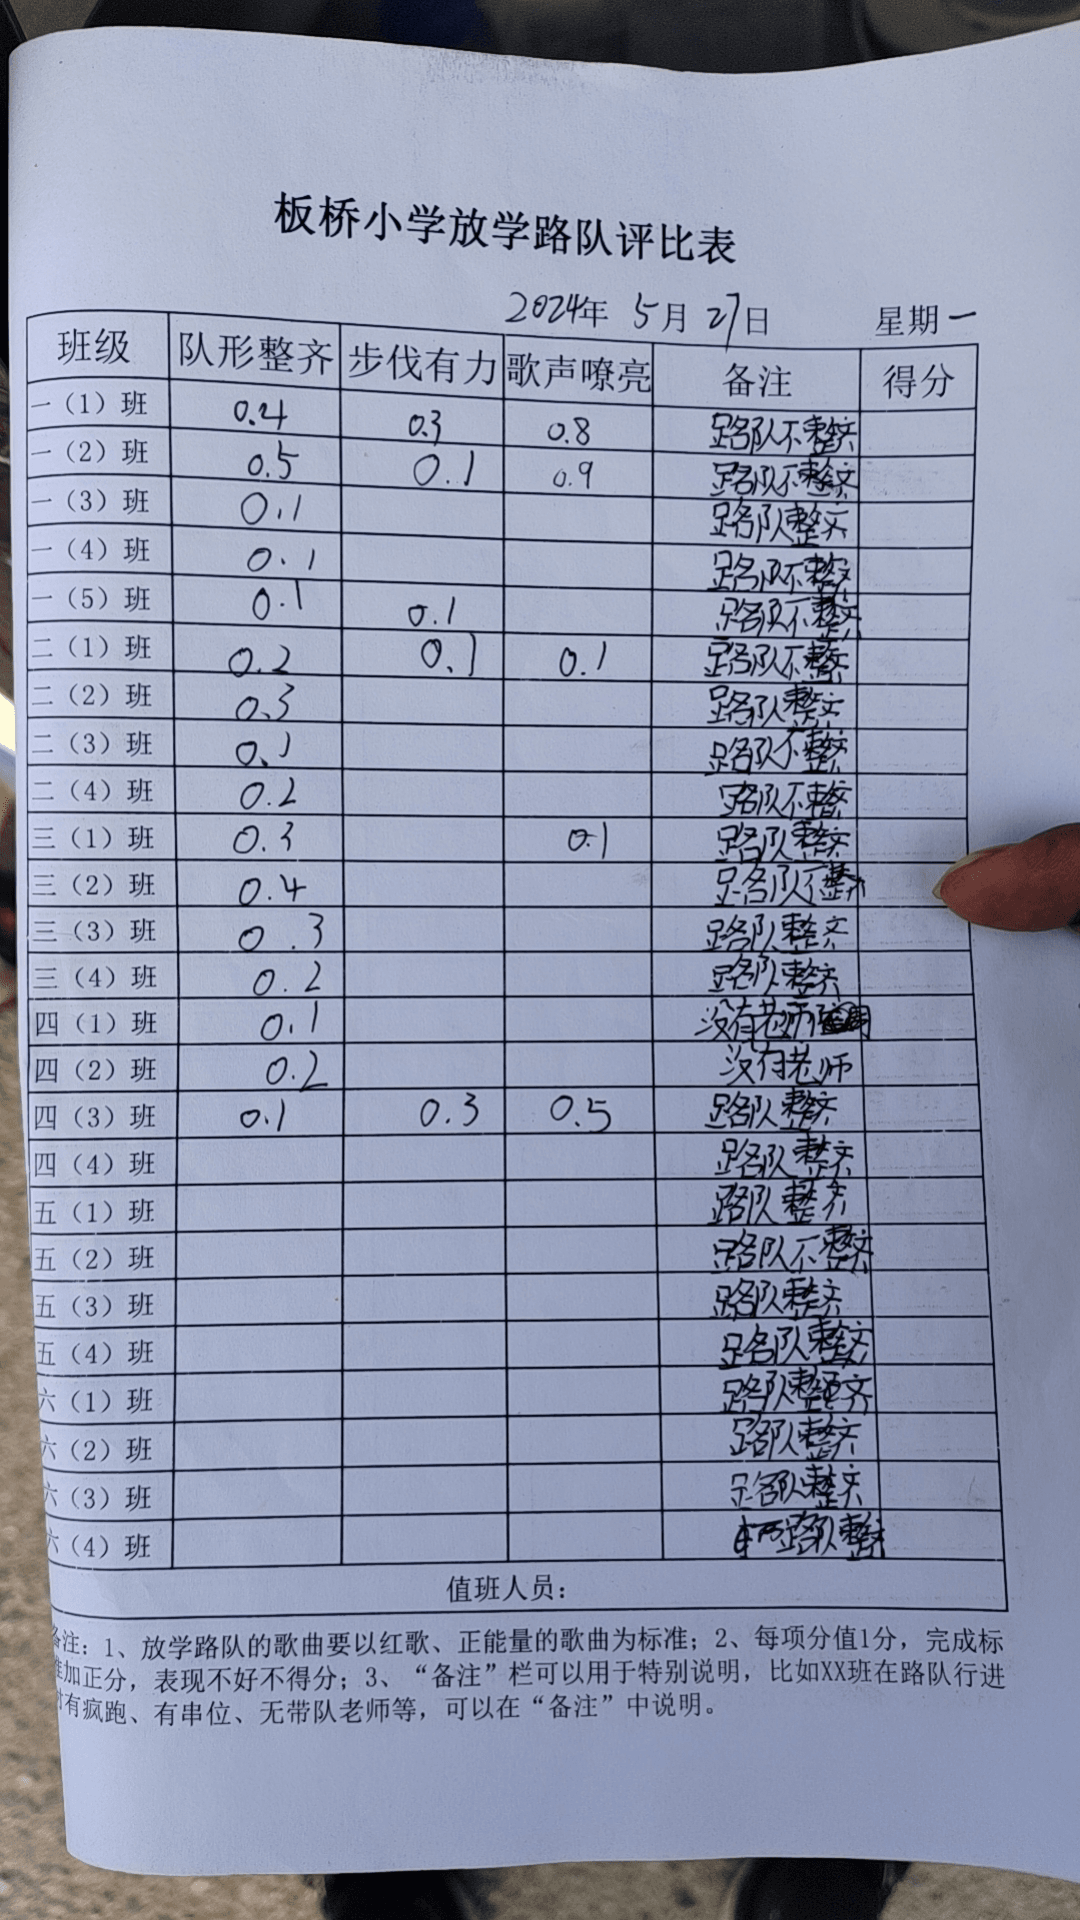 板桥小学放学路队评比表
2024年 5月 27日 星期一
班级 队形整齐 步伐有力 歌声嘹亮 备注 得分
一（1）班 0.4 0.3 0.8 路队不整齐
一（2）班 0.5 0.1 0.9 路队不整齐
一（3）班 0.1 路队整齐
一（4）班 0.1 路队不整齐
一（5）班 0.1 0.1 路队不整齐
二（1）班 0.2 0.1 0.1 路队不整齐
二（2）班 0.3 路队整齐
二（3）班 0.1 路队不整齐
二（4）班 0.2 路队不整齐
三（1）班 0.3 0.1 路队整齐
三（2）班 0.4 路队不整齐
三（3）班 0.3 路队整齐
三（4）班 0.2 路队整齐
四（1）班 0.1 没有老师
四（2）班 0.2 没有老师
四（3）班 0.1 0.3 0.5 路队整齐
四（4）班 路队整齐
五（1）班 路队整齐
五（2）班 路队不整齐
五（3）班 路队整齐
五（4）班 路队整齐
六（1）班 路队整齐
六（2）班 路队整齐
六（3）班 路队整齐
六（4）班 路队整齐
值班人员：
备注：1、放学路队的歌曲要以红歌、正能量的歌曲为标准；2、每项分值1分，完成标
准加正分，表现不好不得分；3、“备注”栏可以用于特别说明，比如XX班在路队行进
时有疯跑、有串位、无带队老师等，可以在“备注”中说明。